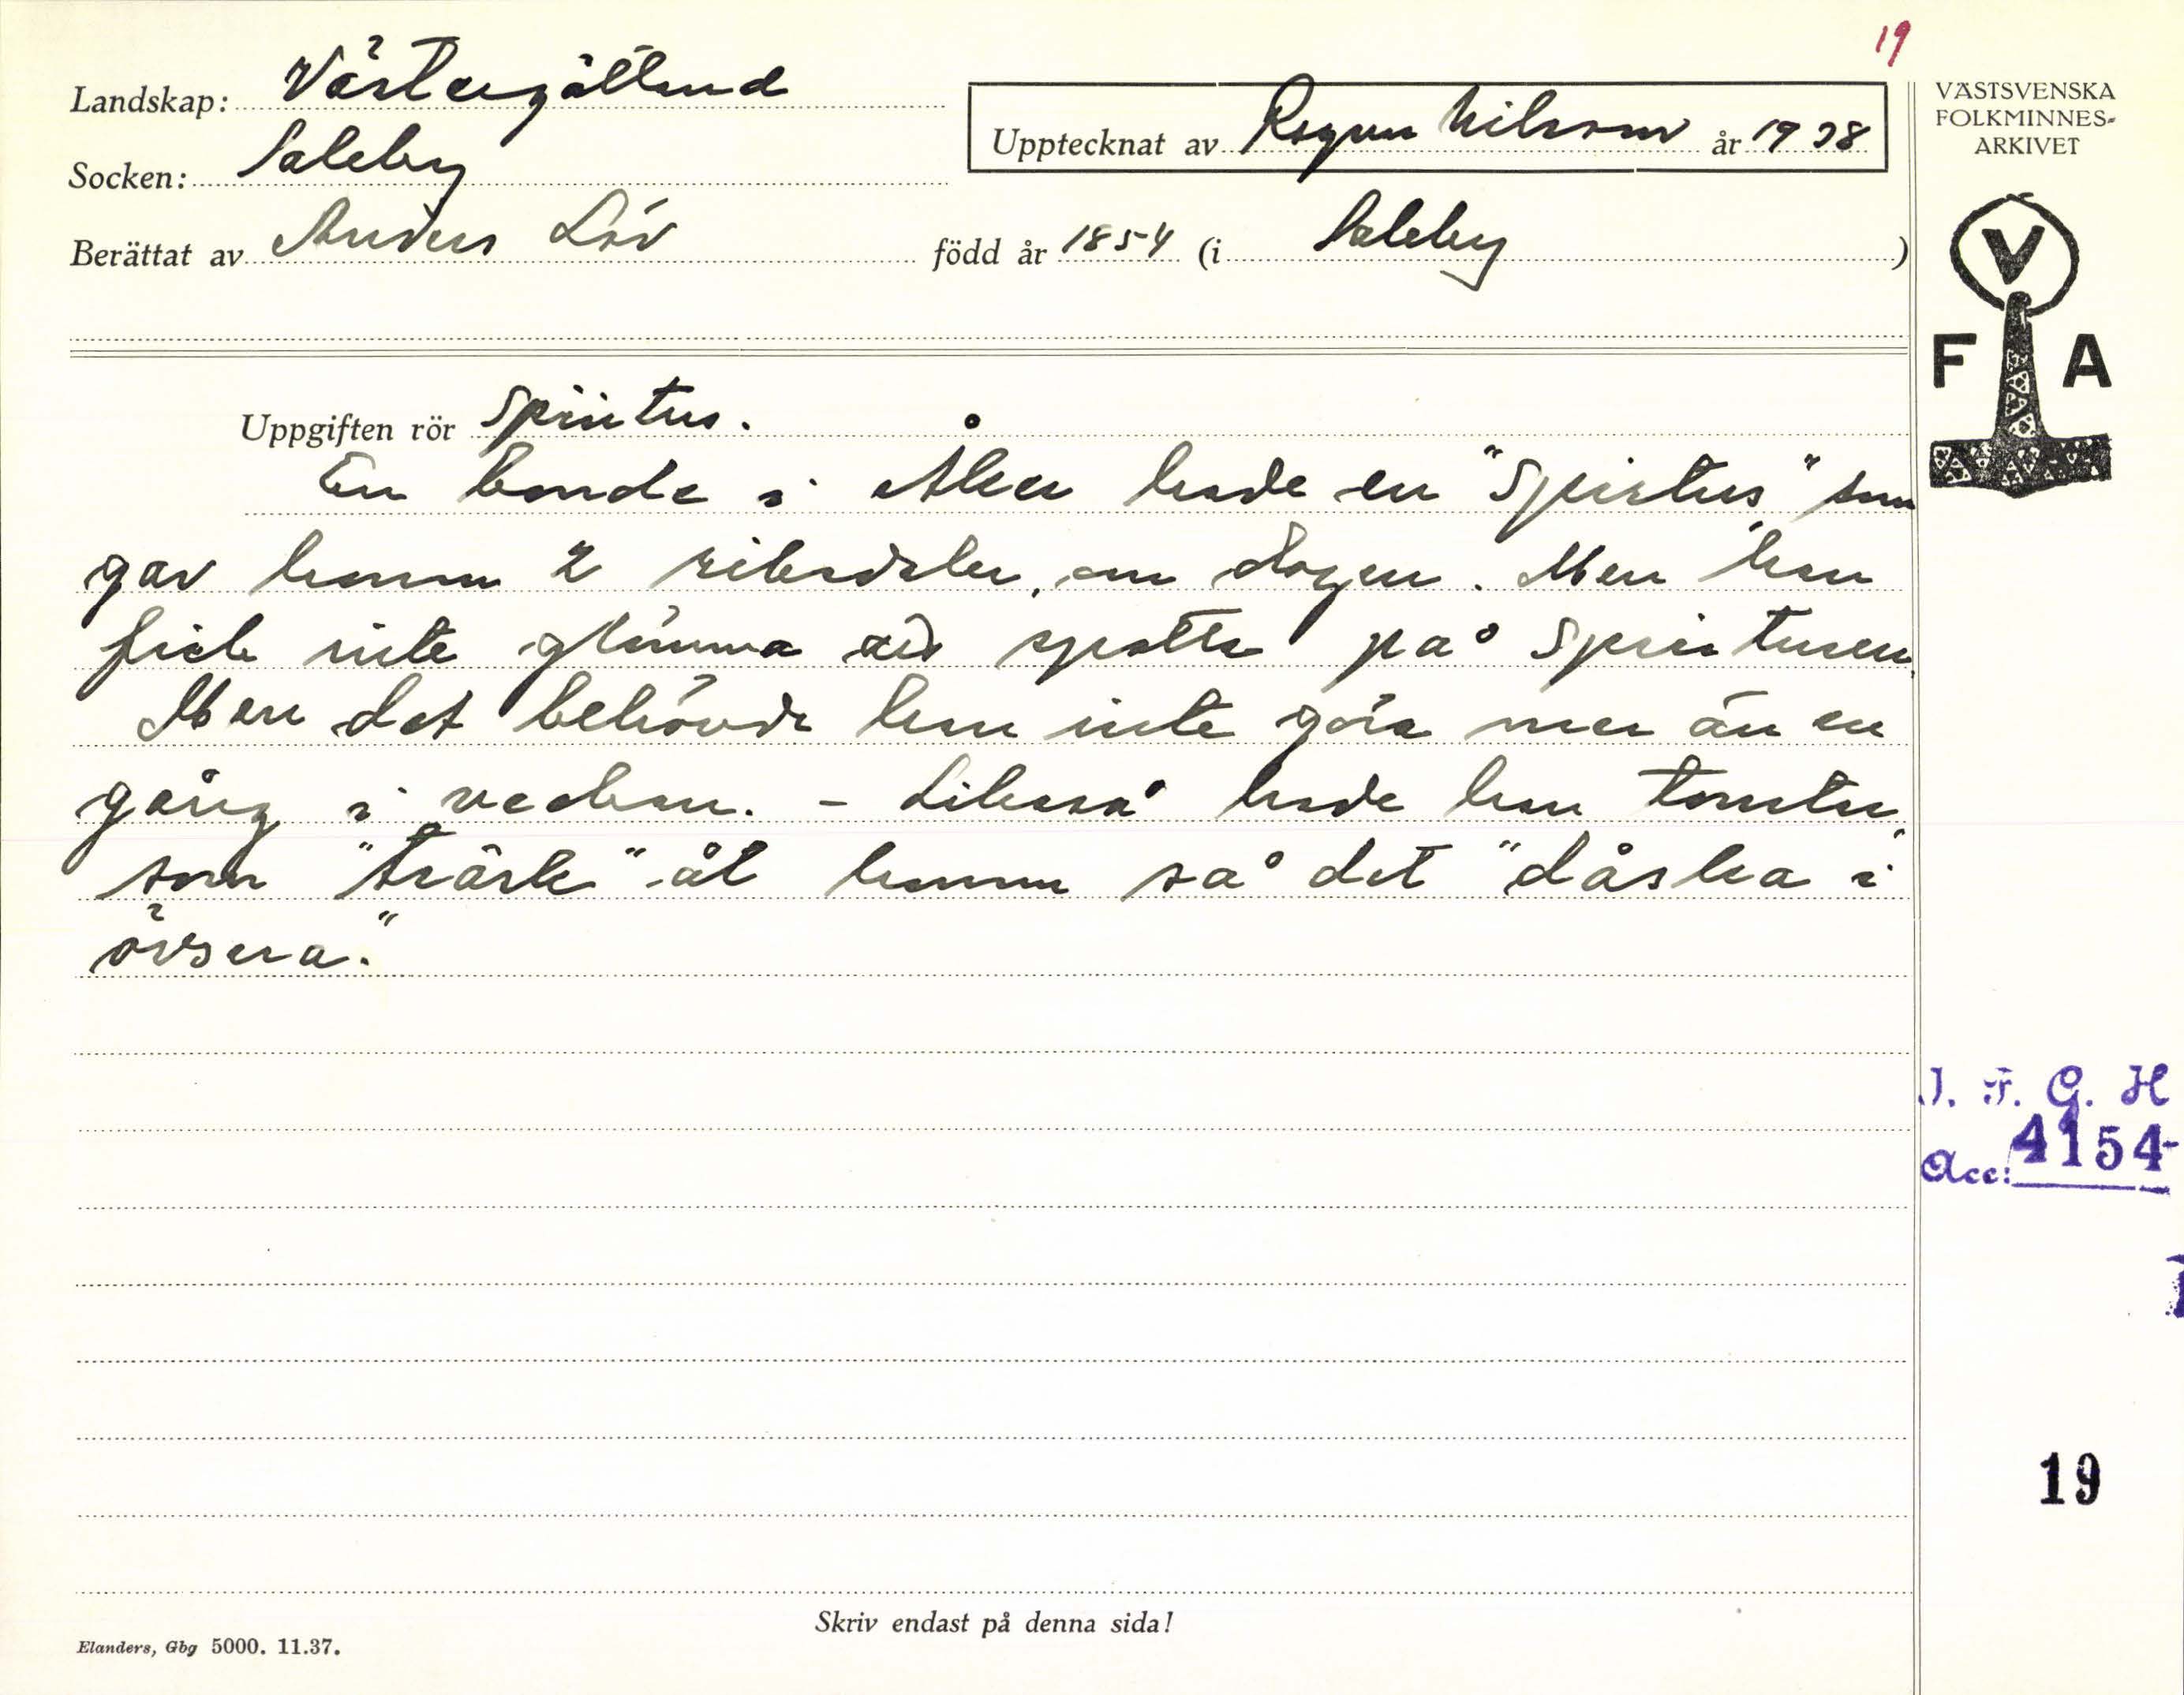 19
Landskap: Västergötland
Socken: Saleby
Berättat av Anders Löv född år 1854 (i Saleby)
Upptecknat av Ragnar Nilsson år 1938
VÄSTSVENSKA
FOLKMINNES-
ARKIVET
V
F A
Uppgiften rör Spiritus.
En bonde i Åker hade en "Spiritus" som
gav honom 2 riksdaler om dagen. Men han
fick inte glömma att spotta på Spiritusen.
Men det behövde han inte göra mer än en
gång i veckan. - Likaså hade han tomtar,
som "träske" åt honom så det "dåska i
övsera."
I. F. G. H
Acc: 4154
19
Skriv endast på denna sida!
Elanders, Gbg 5000. 11.37.